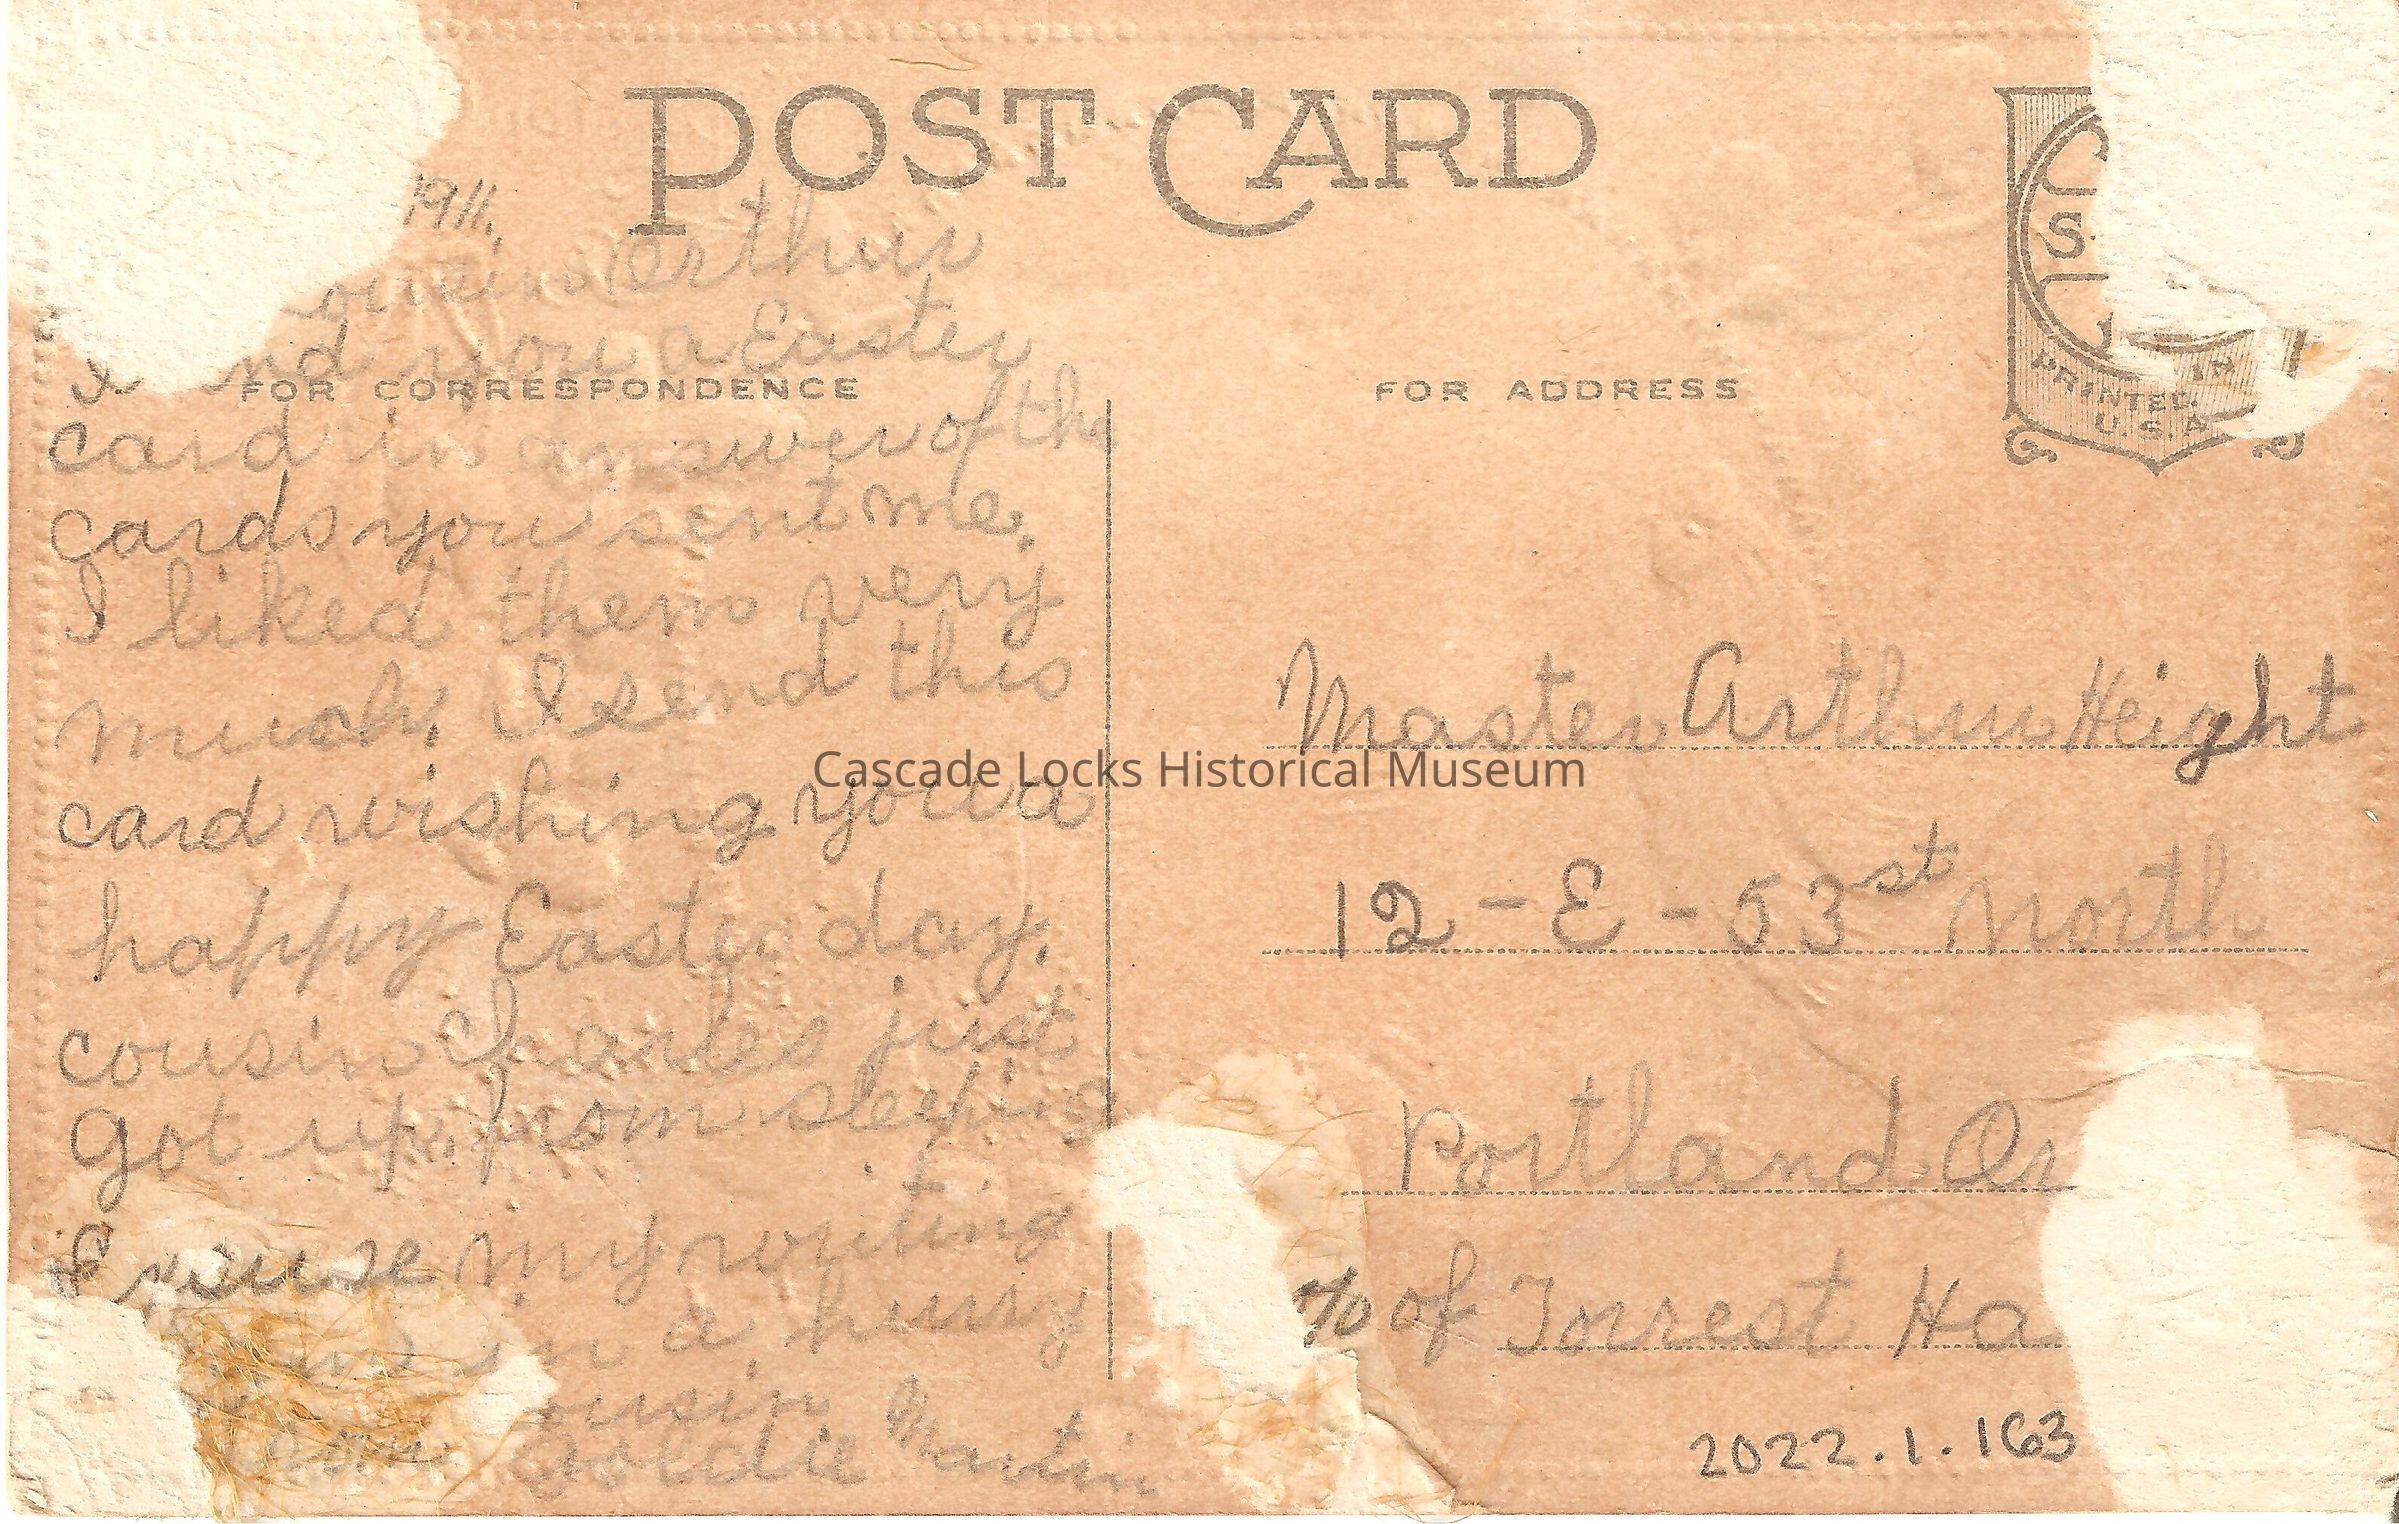 POST CARD
1911.
Arthur
you a Easter
FOR CORRESPONDENCE
card in answer of the
cards you sent me.
I liked them very
much. I send this
card wishing you a
happy Easter day.
cousin Charles just
got up from sleeping
Excuse my writing
in a hurry
cousin
Goldie Martin
FOR ADDRESS
PRINTED IN
U.S.A
Master Arthur Height
12 - E - 53st North
Portland. Or
% of Forrest Ha
2022.1.163
Cascade Locks Historical Museum